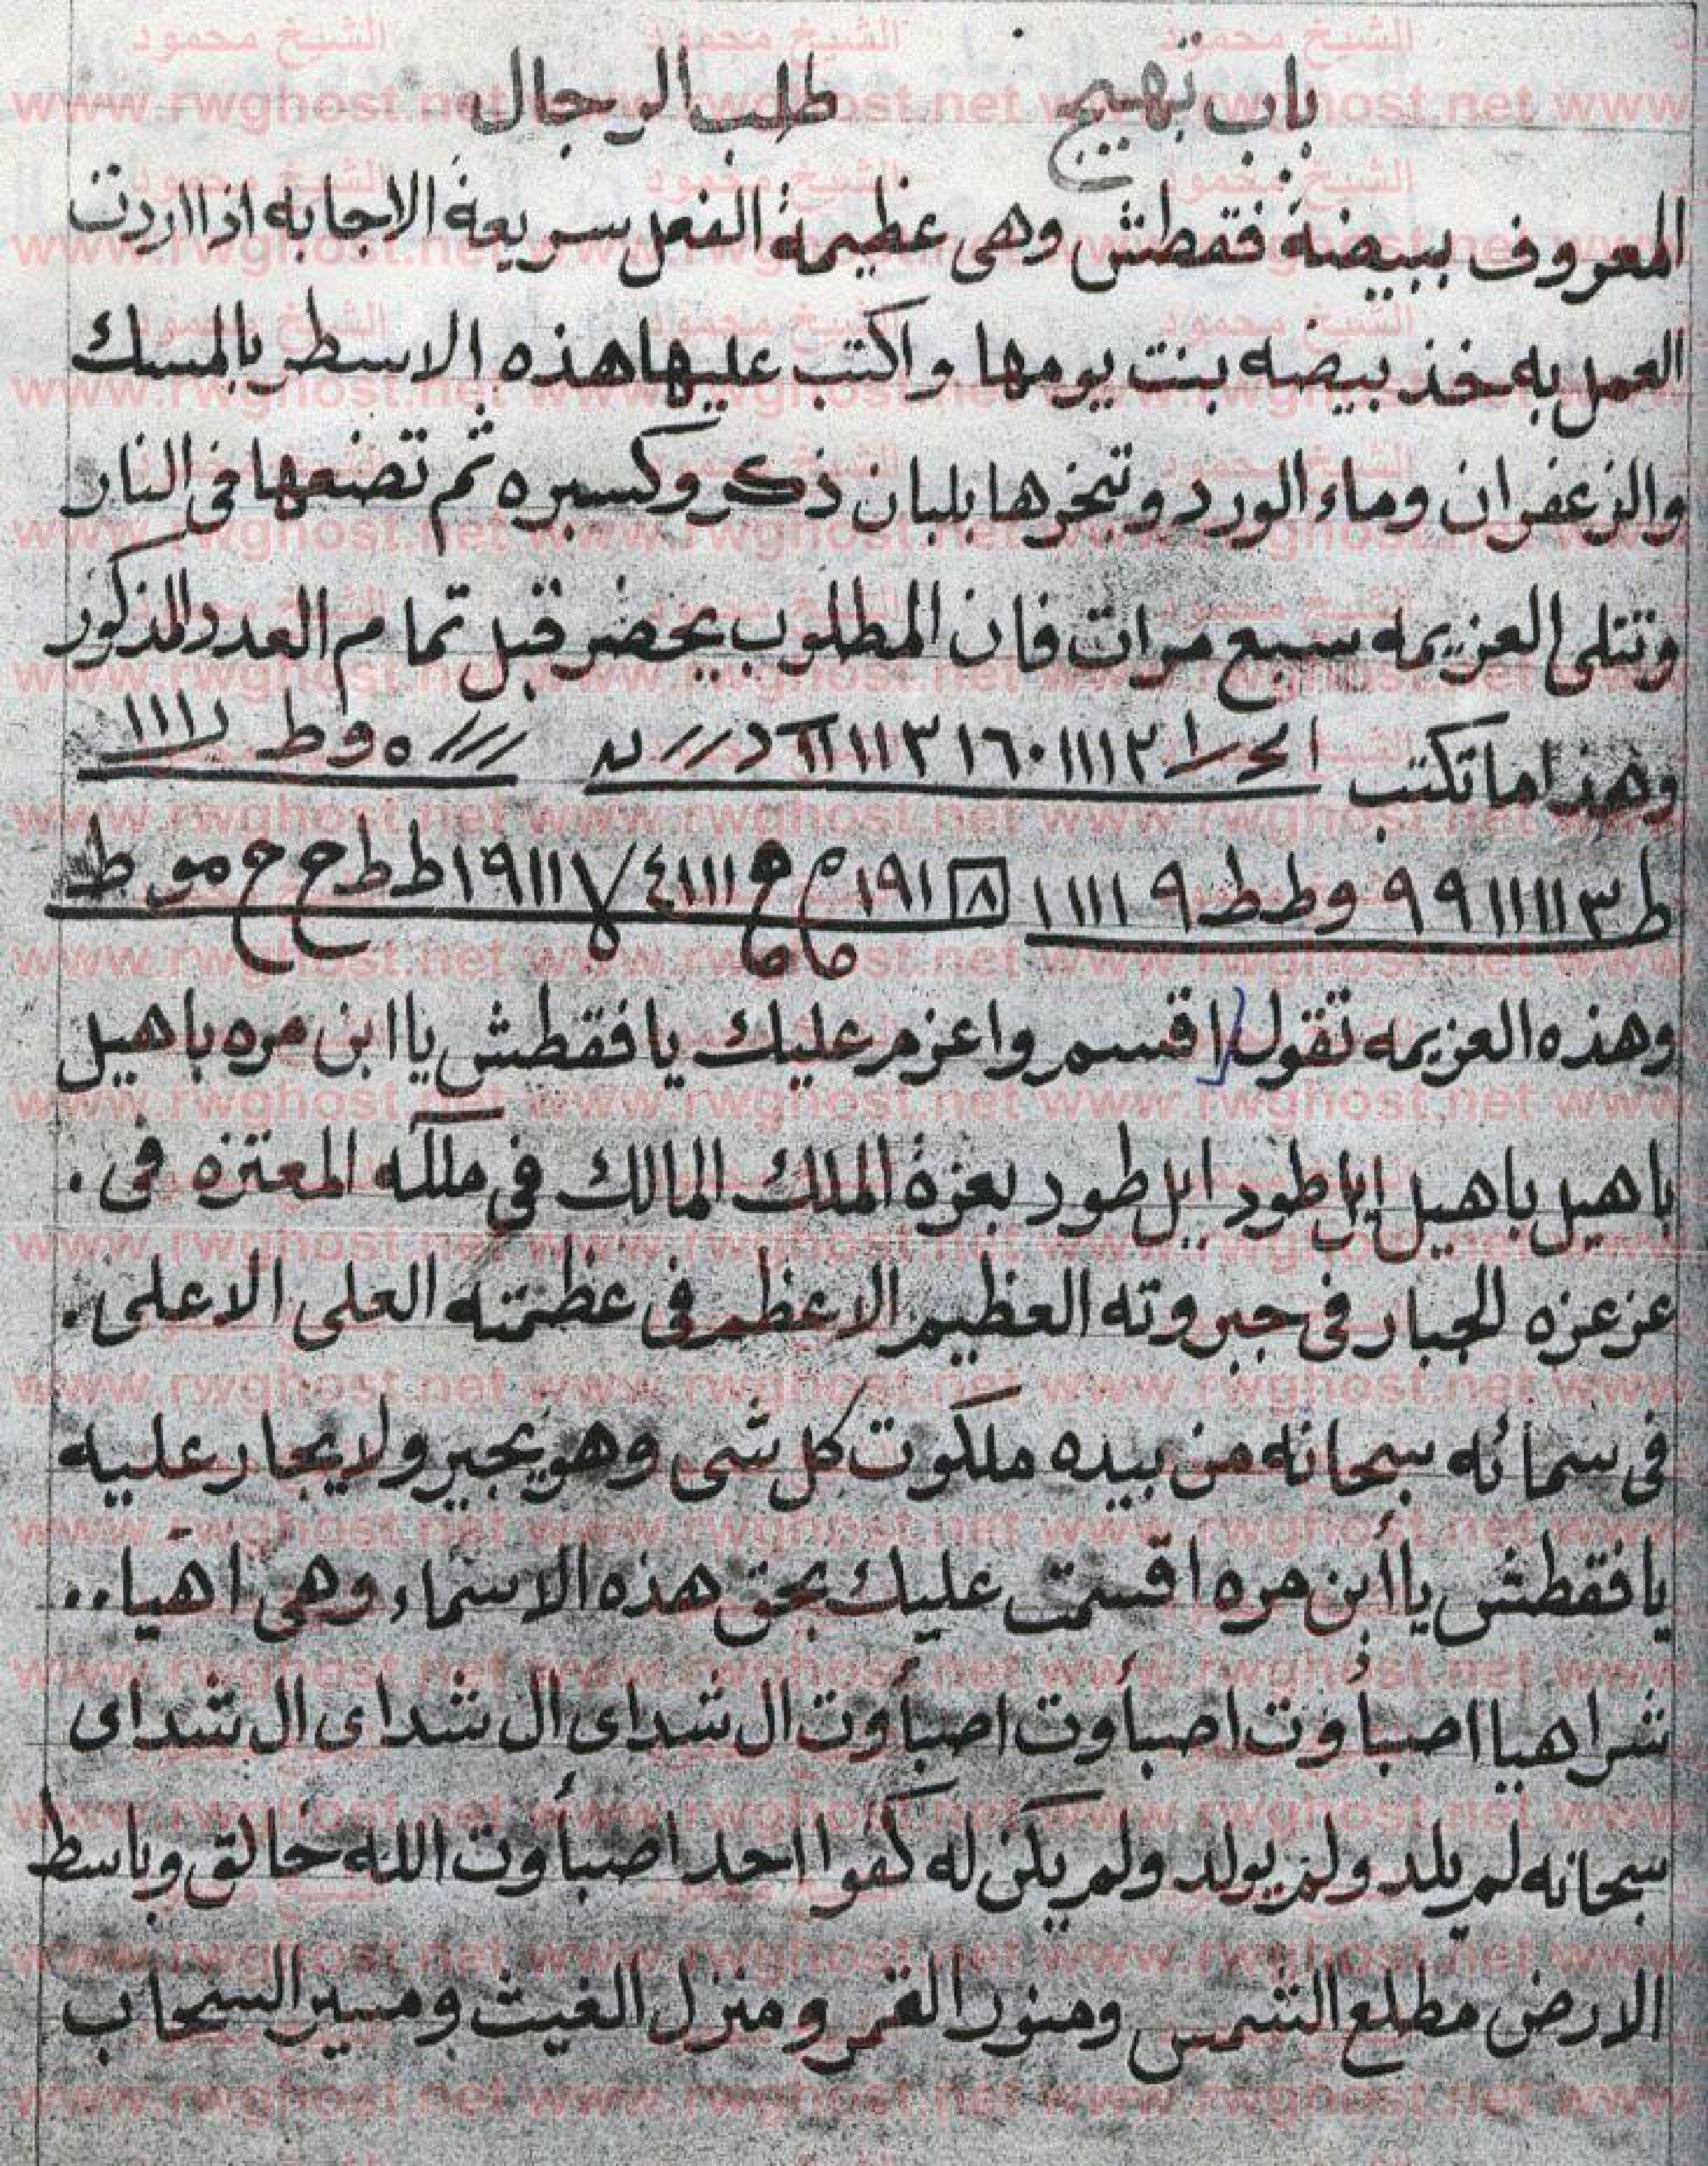 باب تهييج طلب الرجال
المعروف ببيضة فقطش وهى عظيمة الفعل سريعة الاجابه اذا اردت
العمل به خذ بيضه بنت يومها واكتب عليها هذه الاسطر بالمسك
والزعفران وماء الورد وتبخرها بلبان ذكر وكسبره ثم تضعها فى النار
وتتلى العزيمه سبع مرات فان المطلوب يحضر قبل تمام العدد المذكور
وهذا ما تكتب
ط ٣١١١١١ ٩ ٩ وط ط ٩ ١١١١ ٨ ١٩١
وهذه العزيمه تقول اقسم واعزم عليك يا فقطش يا ابن مره باهيل
باهيل باهيل ايل طود ايل طود بعزة الملك المالك في ملكه المعتزه فى .
عز عزه الجبار فى جبروته العظيم الاعظم فى عظمته العلى الاعلى .
فى سمائه سبحانه من بيده ملكوت كل شى وهو يجير ولا يجار عليه
يا فقطش يا أبن مره اقسمت عليك بحق هذه الاسماء وهى اهيا ..
شراهيا اصبأوت اصبأوت اصبأوت ال شداى ال شداى ال شداى
سبحانه لم يلد ولم يولد ولم يكن له كفوا احد اصبأوت الله خالق وباسط
الارض مطلع الشمس ومنور القمر ومنزل الغيث ومسير السحاب
الشيخ محمود
www.rwghost.net